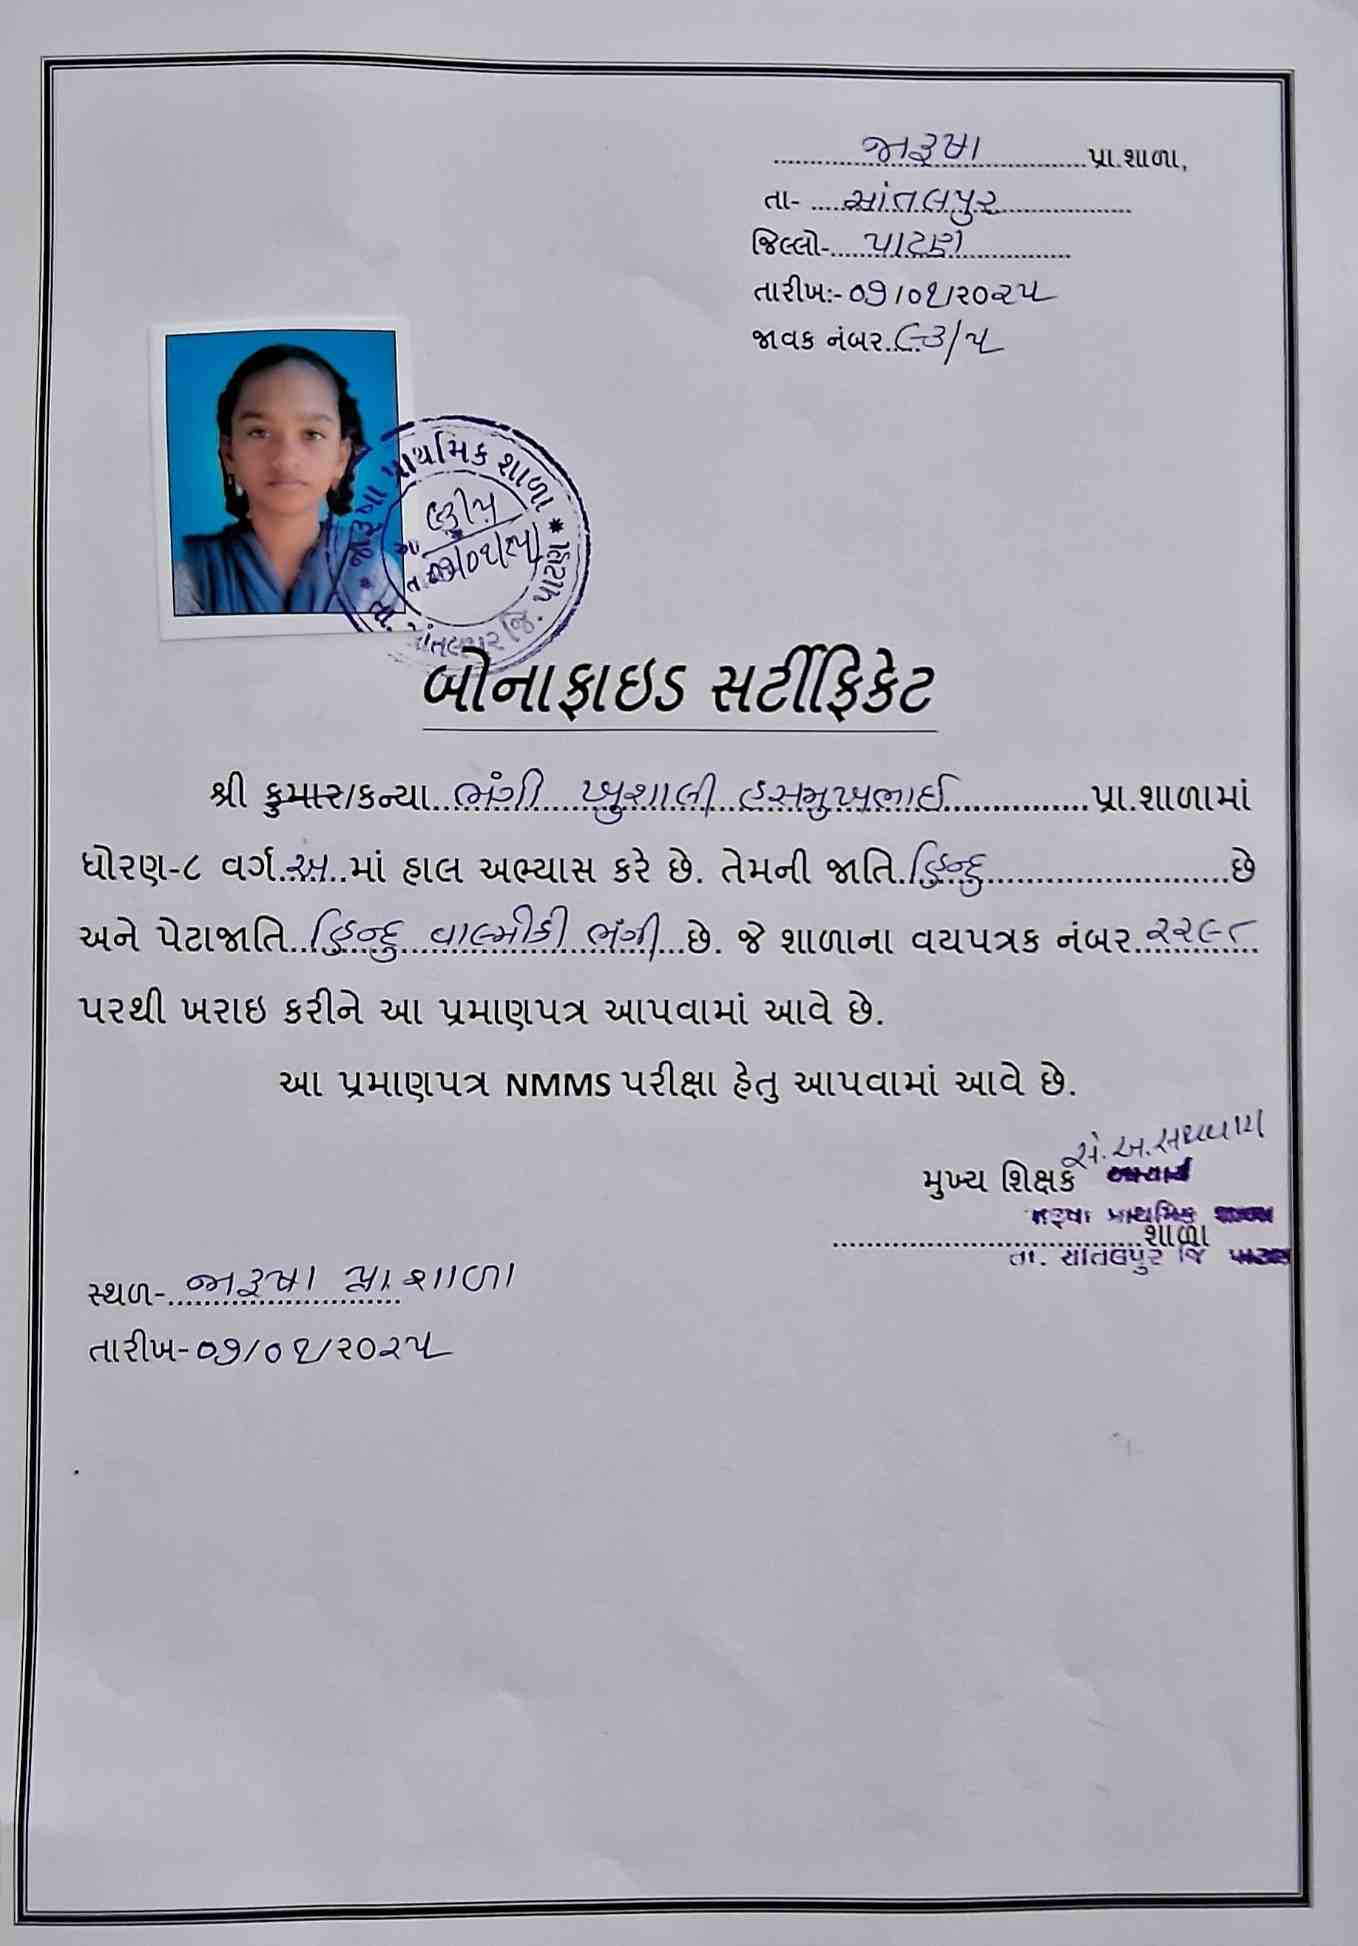 જારુષા પ્રા.શાળા,
તા- સાંતલપુર
જિલ્લો- પાટણ
તારીખ:- ૦૭/૦૧/૨૦૨૫
જાવક નંબર. ૯૩/૫
પ્રાથમિક શાળા * પાટણ
તા. સાંતલપુર જિ.
૯૩/૫
તા. ૦૭/૦૧/૨૫
બોનાફાઇડ સર્ટીફિકેટ
શ્રી કુમાર/કન્યા ભંગી ખુશાલી હસમુખભાઈ પ્રા.શાળામાં
ધોરણ-૮ વર્ગ અ માં હાલ અભ્યાસ કરે છે. તેમની જાતિ હિન્દુ છે
અને પેટાજાતિ હિન્દુ વાલ્મીકી ભંગી છે. જે શાળાના વયપત્રક નંબર ૨૨૯૮
પરથી ખરાઇ કરીને આ પ્રમાણપત્ર આપવામાં આવે છે.
આ પ્રમાણપત્ર NMMS પરીક્ષા હેતુ આપવામાં આવે છે.
મુખ્ય શિક્ષક
પ્રાથમિક
શાળા
તા. સાંતલપુર જિ પાટણ
સ્થળ- જારુષા પ્રા શાળા
તારીખ- ૦૭/૦૧/૨૦૨૫